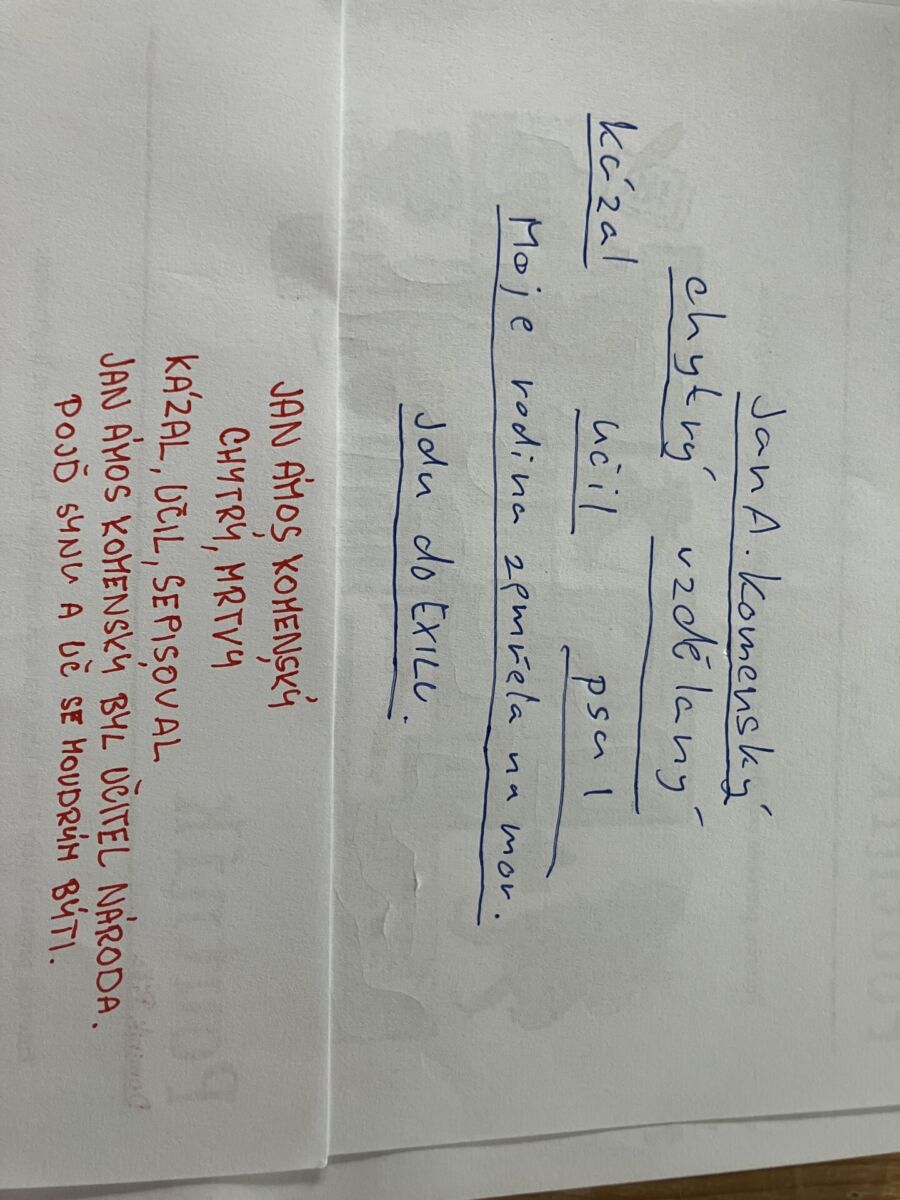 Jan A. Komenský
chytrý vzdělaný
kázal učil psal
Moje rodina zemřela na mor.
Jdu do EXILU.
JAN ÁMOS KOMENSKÝ
CHYTRÝ, MRTVÝ
KÁZAL, UČIL, SEPISOVAL
JAN ÁMOS KOMENSKÝ BYL UČITEL NÁRODA.
POJĎ SYNU A UČ SE MOUDRÝM BÝTI.